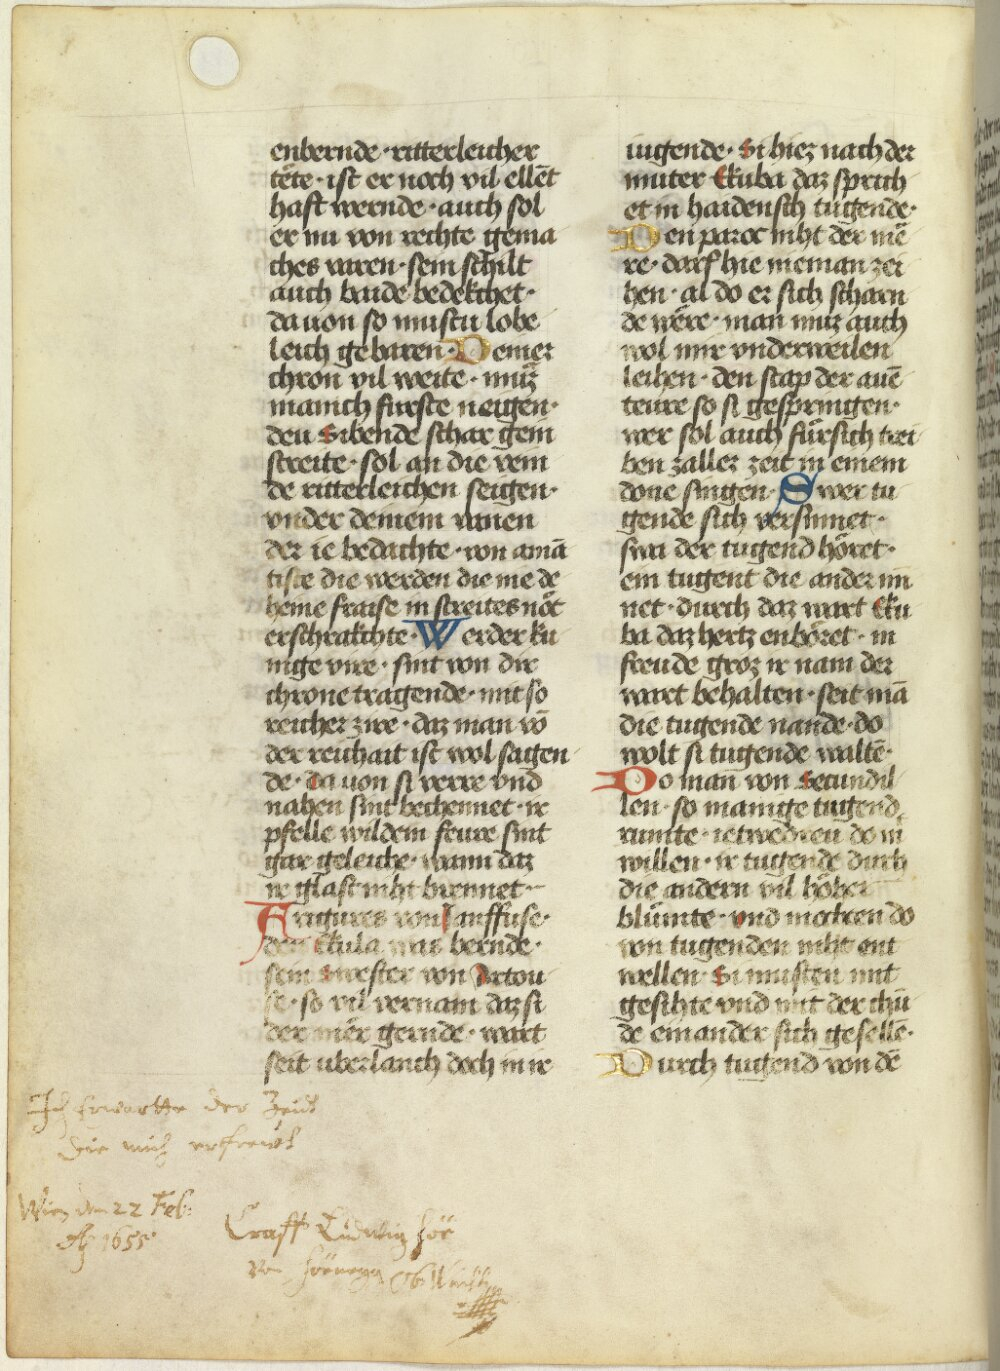 enbernde · ritterleicher
tete · ist er noch vil ellēt
haft wernde · auch sol
er nu von rechte gema
ches varen · sein schilt
auch baide bedekchet ·
da uon so mustu lobe
leich gebaren · Deiner
chron vil weite · mŭz
manich furste neigen ·
den sibende schar gein
streite · sol an die vein
de ritterleichen seigen ·
vnder deinem vanen
der ie bedachte · von amā
tiste die werden die nie de
heine fraise in streites nöt
erschrakchte · Werder ku
nige vire · sint von dir
chrone tragende · mit so
reicher zire · daz man vō
der reichait ist wol sagen
de · da uon si verre vnd
nahen sint bechennet · ir
pfelle wildem feure sint
gar geleiche · wann daz
ir glast niht brennet ·
Frigures von Janffuse ·
den Ekula was bernde ·
sein swester von Artou
se · so vil vernam daz si
der mer gernde · wart
seit uberlauch doch in ir
iugende · Si hiez nach der
muter Ekuba daz sprich
et in haidensch tugende ·
Den paroc niht der mē
re · darf hie nieman zei
hen · al do er sich scharn
de were · man muz auch
wol mir vnderweilen
leihen · den stap der auē
teure so si gespringen ·
wer sol auch fürsich trei
ben zaller zeit in einem
done singen · Swer tu
gende sich versinnet ·
swa der tugend höret ·
ein tugent die ander mi
net · durch daz wart Eku
ba daz hertz enböret · in
freude groz ir nam der
wart behalten · seit mā
die tugende nande · do
wolt si tugende waltē ·
Do man von Secundil
len · so manige tugend
rumte · ietwedreu do in
willen · ir tugende durch
die andern vil höher
blümte · vnd mochten do
von tugenden niht ent
wellen · Si musten mit
gesihte vnd mit der chū
de einander sich gesellē ·
Durch tugend von dē
Ich Erwartte der Zeidt
die mich erfreudt
Wien den 22 Feb:
Aō 1655
Crafft Ludwig
von